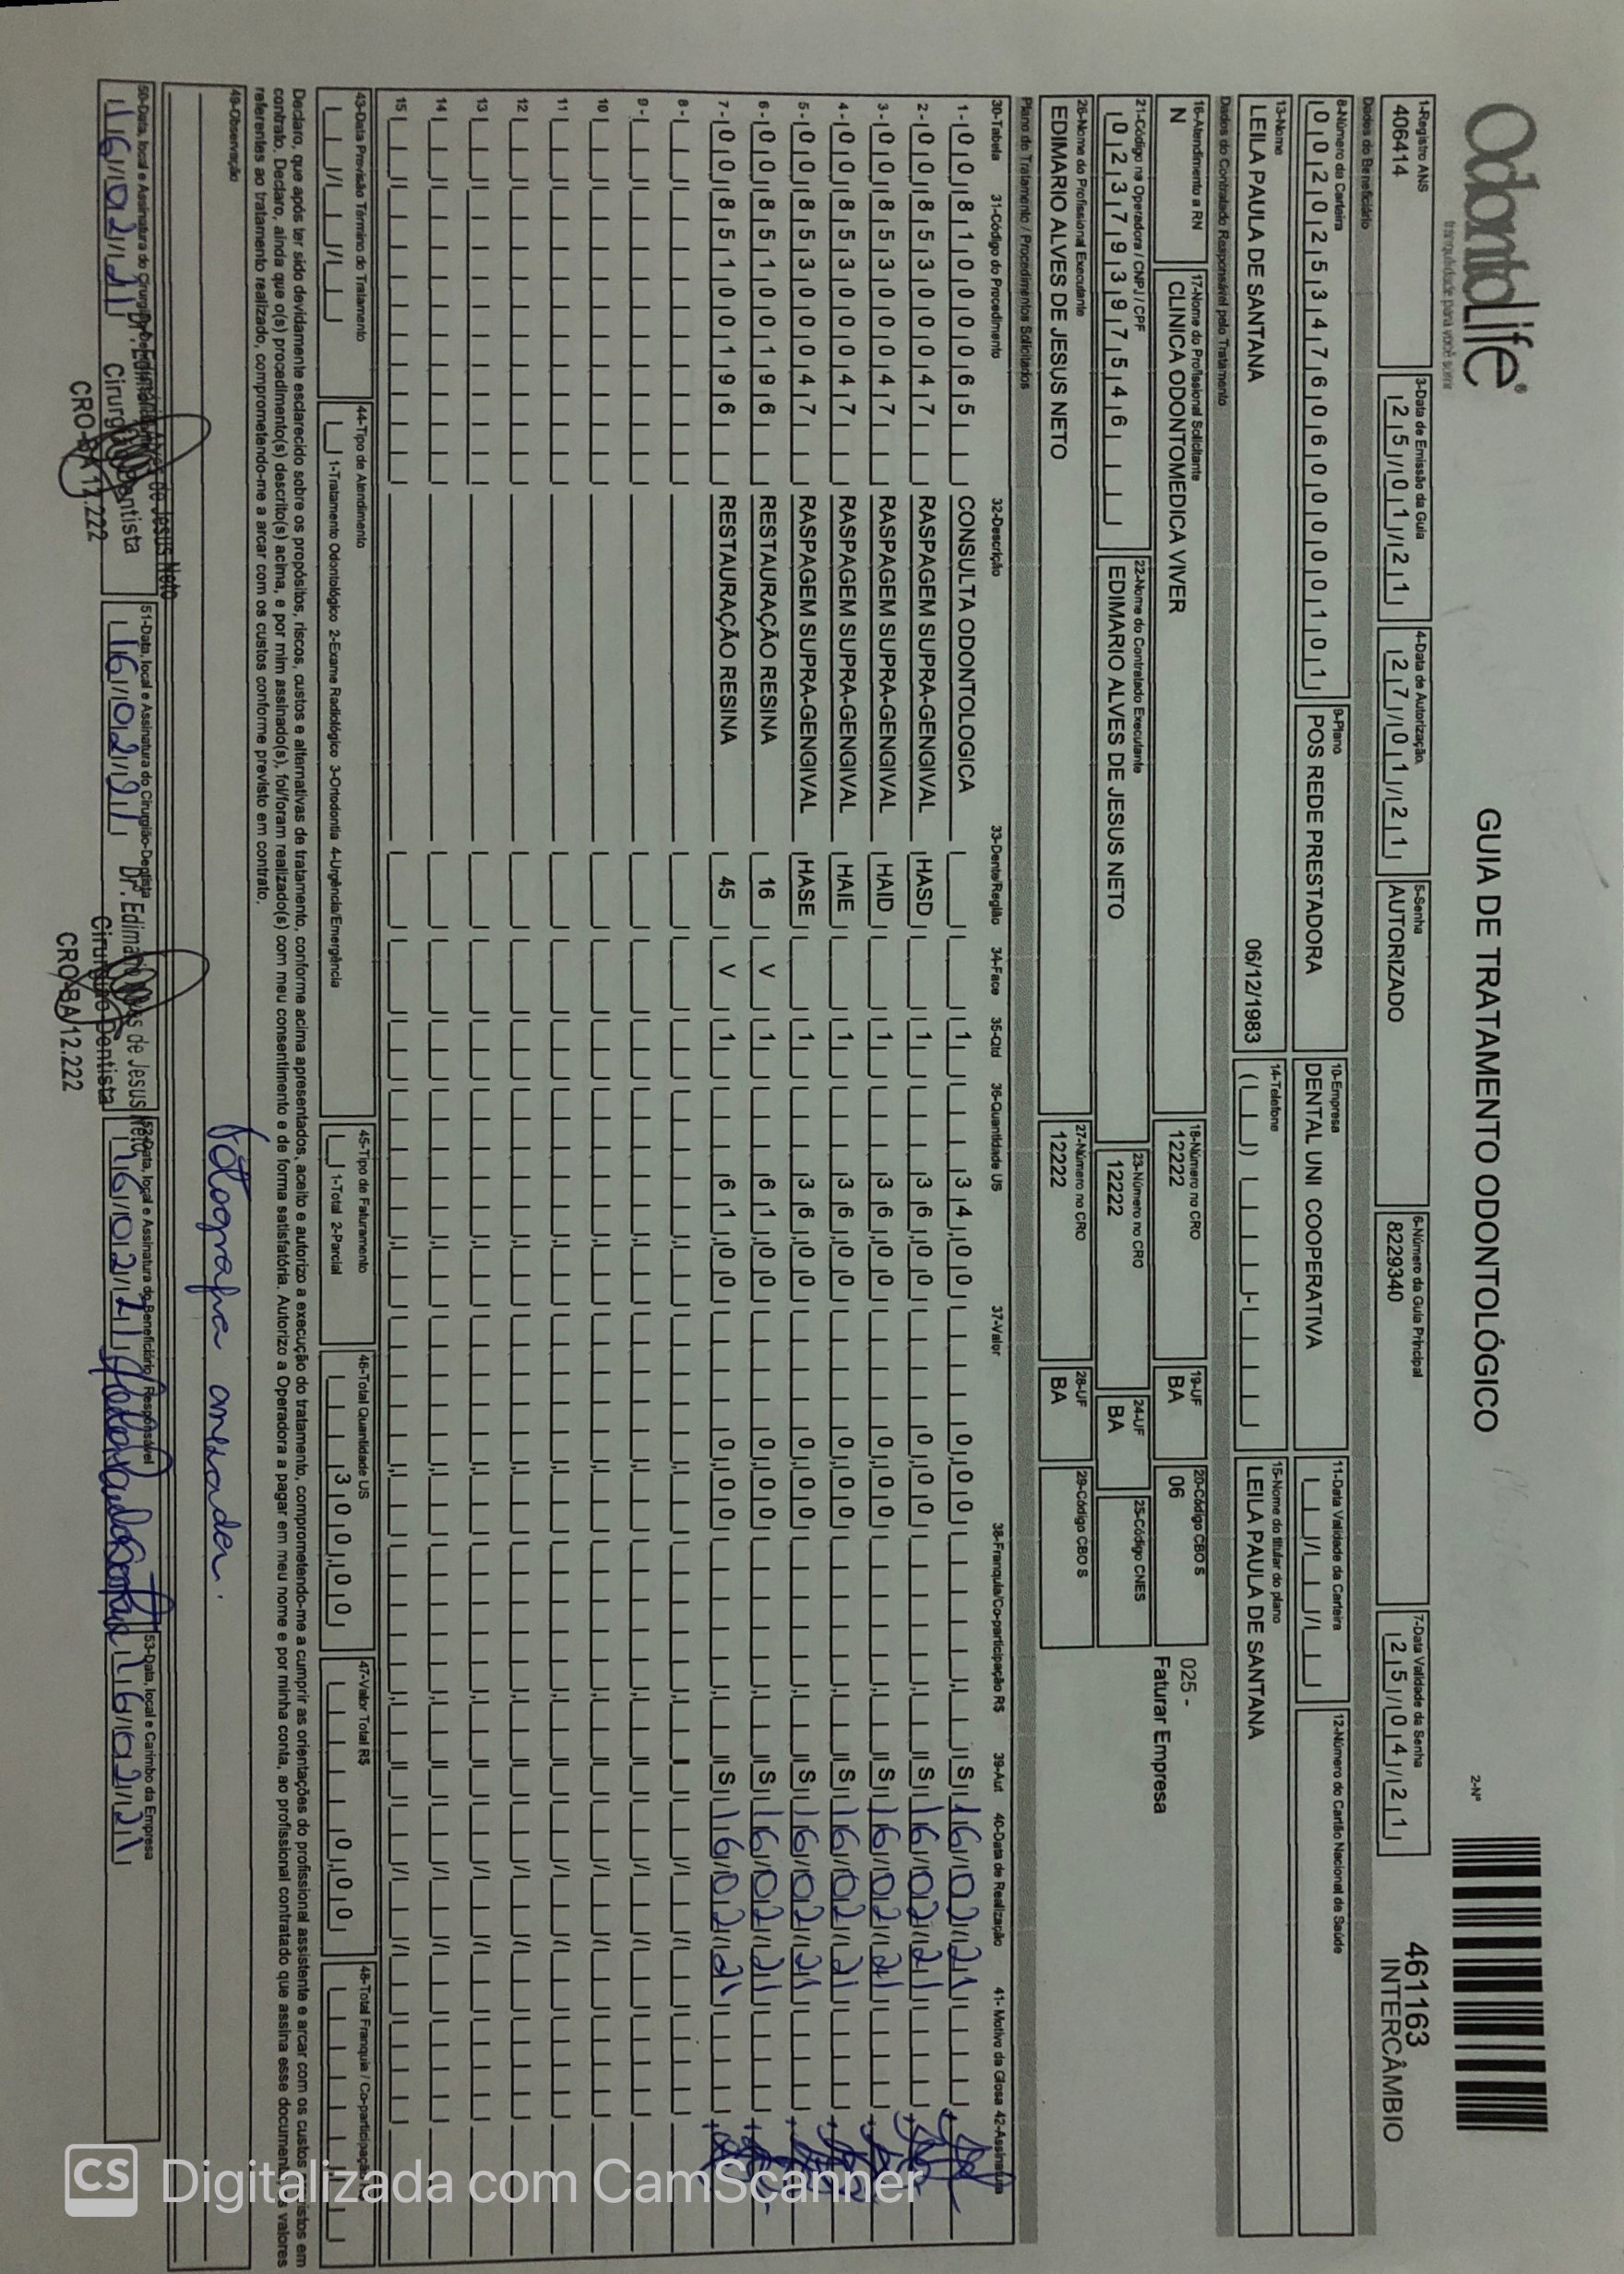 OdontoLife®
tranquilidade para você sorrir
GUIA DE TRATAMENTO ODONTOLÓGICO
2-Nº
461163
INTERCÂMBIO
1-Registro ANS
406414
3-Data de Emissão da Guia
25/01/21
4-Data de Autorização
27/01/21
5-Senha
AUTORIZADO
6-Número da Guia Principal
8229340
7-Data Validade da Senha
25/04/21
Dados do Beneficiário
8-Número da Carteira
00202534760600000101
9-Plano
POS REDE PRESTADORA
10-Empresa
DENTAL UNI COOPERATIVA
11-Data Validade da Carteira
12-Número do Cartão Nacional de Saúde
13-Nome
LEILA PAULA DE SANTANA 06/12/1983
14-Telefone
15-Nome do titular do plano
LEILA PAULA DE SANTANA
Dados do Contratado Responsável pelo Tratamento
16-Atendimento a RN
N
17-Nome do Profissional Solicitante
CLINICA ODONTOMEDICA VIVER
18-Número no CRO
12222
19-UF
BA
20-Código CBO S
06
025 -
Faturar Empresa
21-Código na Operadora / CNPJ / CPF
02379397546
22-Nome do Contratado Executante
EDIMARIO ALVES DE JESUS NETO
23-Número no CRO
12222
24-UF
BA
25-Código CNES
26-Nome do Profissional Executante
EDIMARIO ALVES DE JESUS NETO
27-Número no CRO
12222
28-UF
BA
29-Código CBO S
Plano de Tratamento / Procedimentos Solicitados
30-Tabela 31-Código do Procedimento 32-Descrição 33-Dente/Região 34-Face 35-Qtd 36-Quantidade US 37-Valor 38-Franquia/Co-participação R$ 39-Aut 40-Data de Realização 41- Motivo da Glosa 42-Assinatura
1 - 00 81000065 CONSULTA ODONTOLOGICA 1 34,00 0,00 S 16/02/21
2 - 00 85300047 RASPAGEM SUPRA-GENGIVAL HASD 1 36,00 0,00 S 16/02/21
3 - 00 85300047 RASPAGEM SUPRA-GENGIVAL HAID 1 36,00 0,00 S 16/02/21
4 - 00 85300047 RASPAGEM SUPRA-GENGIVAL HAIE 1 36,00 0,00 S 16/02/21
5 - 00 85300047 RASPAGEM SUPRA-GENGIVAL HASE 1 36,00 0,00 S 16/02/21
6 - 00 85100196 RESTAURAÇÃO RESINA 16 V 1 61,00 0,00 S 16/02/21
7 - 00 85100196 RESTAURAÇÃO RESINA 45 V 1 61,00 0,00 S 16/02/21
8 -
9 -
10
11
12
13
14
15
43-Data Previsão Término do Tratamento
44-Tipo de Atendimento
1-Tratamento Odontológico 2-Exame Radiológico 3-Ortodontia 4-Urgência/Emergência
45-Tipo de Faturamento
1-Total 2-Parcial
46-Total Quantidade US
300,00
47-Valor Total R$
0,00
48-Total Franquia / Co-participação
Declaro, que após ter sido devidamente esclarecido sobre os propósitos, riscos, custos e alternativas de tratamento, conforme acima apresentados, aceito e autorizo a execução do tratamento, comprometendo-me a cumprir as orientações do profissional assistente e arcar com os custos previstos em
contrato. Declaro, ainda que o(s) procedimento(s) descrito(s) acima, e por mim assinado(s), foi/foram realizado(s) com meu consentimento e de forma satisfatória. Autorizo a Operadora a pagar em meu nome e por minha conta, ao profissional contratado que assina esse documento, os valores
referentes ao tratamento realizado, comprometendo-me a arcar com os custos conforme previsto em contrato.
49-Observação
fotografia anexada.
50-Data, local e Assinatura do Cirurgião-Dentista
16/02/21
Dr. Edimario Alves de Jesus Neto
Cirurgião Dentista
CRO-BA 12.222
51-Data, local e Assinatura do Cirurgião-Dentista
16/02/21
Dr. Edimario Alves de Jesus Neto
Cirurgião Dentista
CRO-BA 12.222
52-Data, local e Assinatura do Beneficiário / Responsável
16/02/21
53-Data, local e Carimbo da Empresa
16/02/21
CS Digitalizada com CamScanner